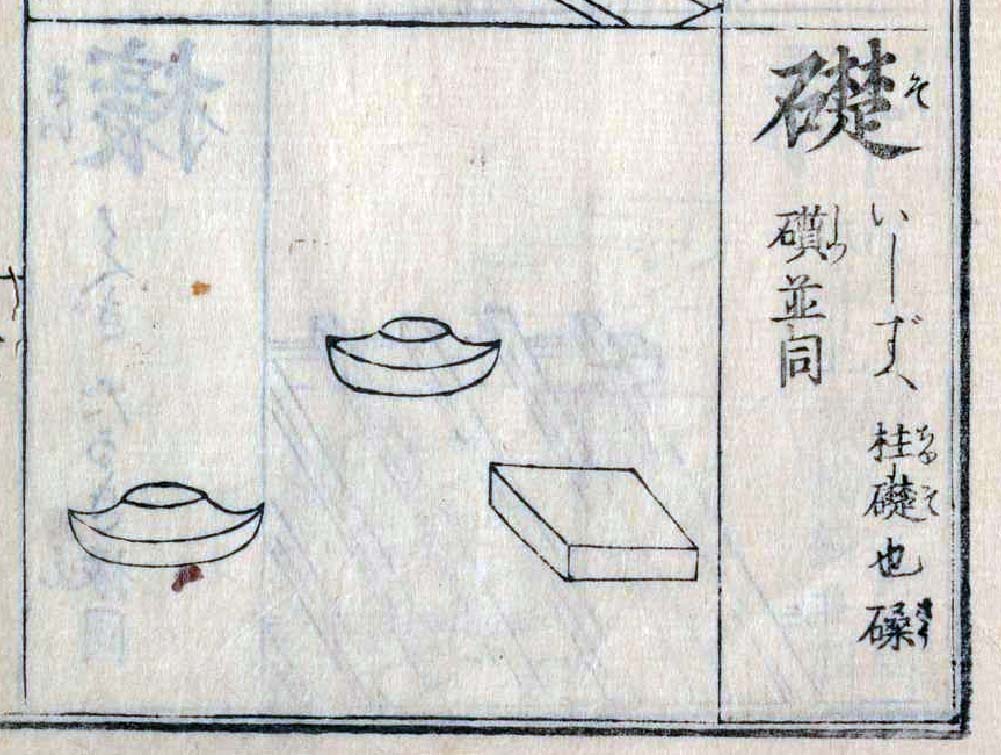 礎
そ
いしずへ 柱礎也磉
ちう そ さう
礩並同
しつ